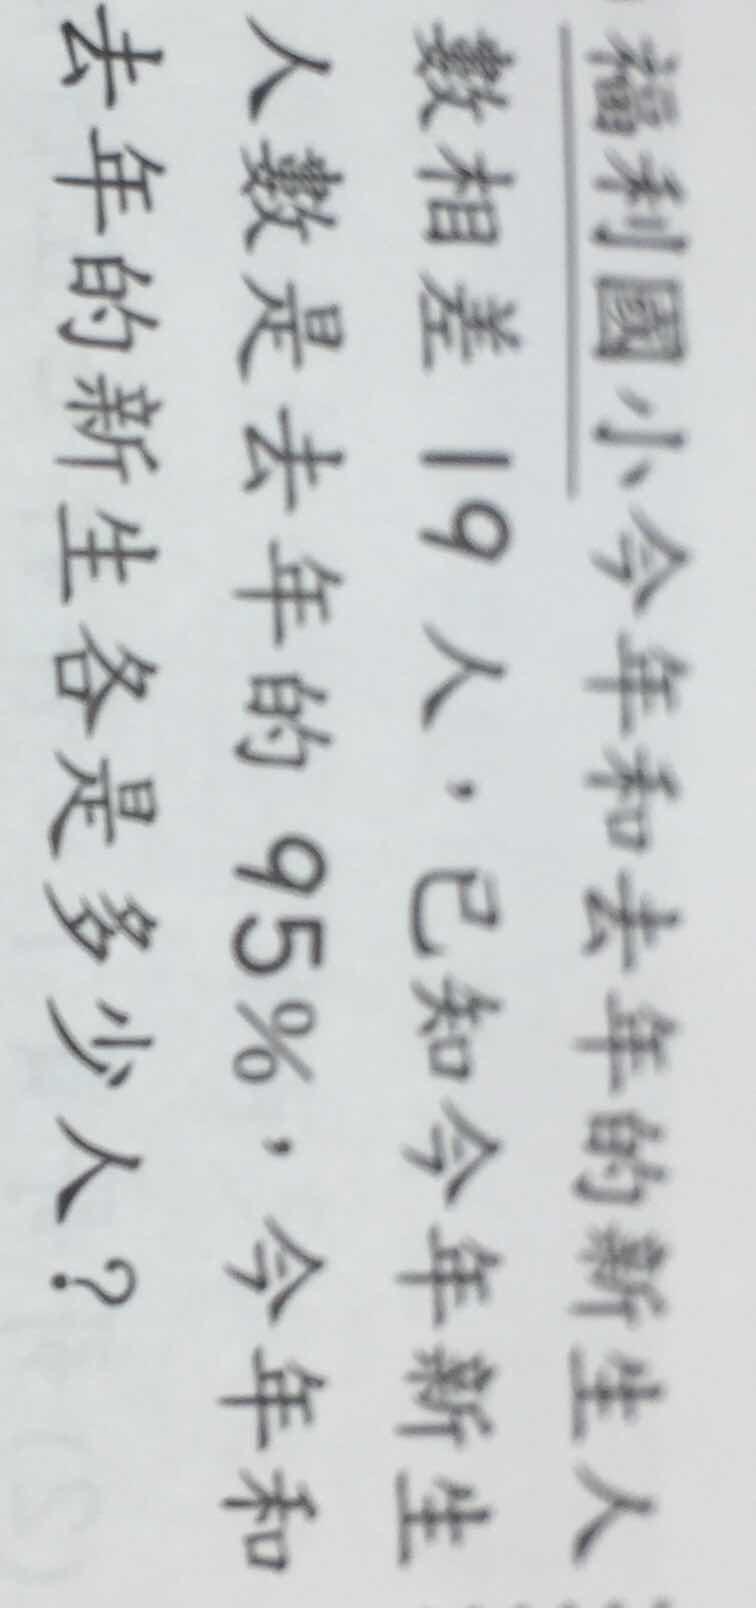 福利國小今年和去年的新生人
數相差19人，已知今年新生
人數是去年的95%，今年和
去年的新生各是多少人？